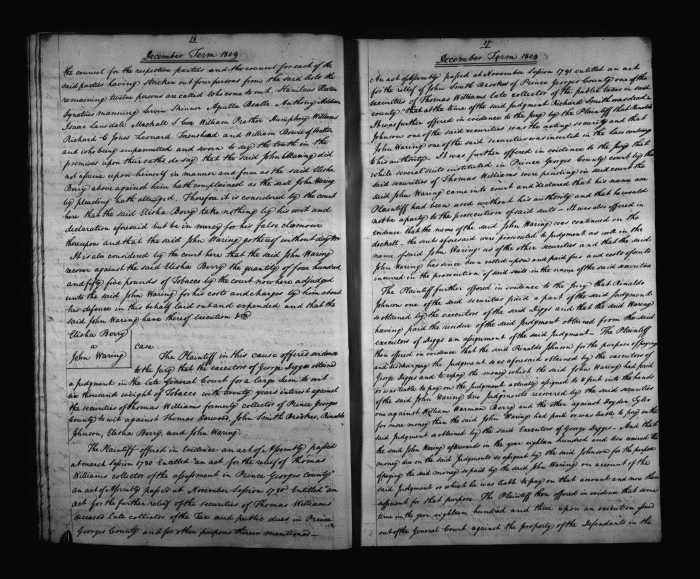 16
December Term 1809
the counsel for the respective parties and the counsel for each of the
said parties having stricken out four persons from the said lists the
remaining twelve persons are called who come to wit. Stanilaus
Ignatius manning Levin Skinner Aquilla Bealle Anthony Addison
Isaac Lansdale Mackall S Cox William Prather Humphrey Williams
Richard C Jones Leonard and William Bowie of Walter
and who being empannelled and sworn to say the truth in the
premises upon their oaths do say that the said John Waring did
not assume upon himself in manner and form as the said Elisha
Berry above against him hath complained as the said John Waring
by pleading hath alledged. Therefore it is considered by the court
here that the said Elisha Berry take nothing by his writ and
declaration aforesaid but be in mercy for his false clamour
thereupon and that the said John Waring go thereof without day &c
It is also considered by the court here that the said John Waring
recover against the said Elisha Berry the quantity of four hundred
and fifty five pounds of Tobacco by the court now here adjudged
unto the said John Waring for his costs and charges by him about
his defence in this behalf laid out and expended and that the
said John Waring have thereof execution &c
Elisha Berry
a
John Waring
case
The Plaintiff in this cause offered evidence
to the jury that the executors of George Diggs obtained
a judgment in the late General Court for a large sum to wit
six thousand weight of Tobacco with twenty years interest against
the securities of Thomas Williams formerly collector of Prince Georges
County to wit against Thomas Harwood, John Smith Brookes, Rinaldo
Johnson, Elisha Berry, and John Waring.
The Plaintiff offered in Evidence an act of Assembly passed
at march Session 1780 Entitled "an act for the relief of Thomas
Williams collector of the assessment in Prince Georges County"
an act of Assembly passed at November Session 1788 Entitled "an
act for the further relief of the securities of Thomas Williams
deceased late collector of the Tax and public dues in Prince
Georges County and for other purposes therein mentioned —
17
December Term 1809
An act of Assembly passed at November Session 1791 entitled an act
for the relief of John Smith Brookes of Prince Georges County one of the
securities of Thomas Williams late collector of the public taxes in said
county; that at the time of the said judgment Richard Smith was dead
It was further offered in evidence to the jury by the Plaintiff that Rinaldo
Johnson one of the said securities was the acting security and that
John Waring one of said securities was interested in the law
to his authority. It was further offered in evidence to the jury that
while several suits instituted in Prince Georges County court by the
said securities of Thomas Williams were pending in said court the
said John Waring came into court and declared that his name as
Plaintiff had been used without his authority and that he would
not be a party to the prosecution of said suits — It was also offered in
evidence that the name of the said John Waring was continued on the
dockett — the suits aforesaid were prosecuted to judgment as well in the
name of said John Waring as of the other securities and that the said
John Waring has since been called upon and paid fees and costs of suits
incured in the prosecution of said suits in the name of the said securities
The Plaintiff further offered in evidence to the jury that Rinaldo
Johnson one of the said securities paid a part of the said Judgment
so obtained by the executors of the said Diggs and that the said Waring
having paid the residue of the said Judgment obtained from the said
executors of Diggs an assignment of the said Judgment — The Plaintiff
then offered in evidence that the said Rinaldo Johnson for the purpose of paying
and discharging the Judgment was aforesaid obtained by the executors of
George Diggs and to repay the money which the said John Waring had paid
or was liable to pay on the judgment actually assigned to & put into the hands
of the said John Waring two Judgments recovered by the said securities
one against William Warman Berry and the other against Hayden Tyler
for more money than the said John Waring had paid or was liable to pay on the
said judgment obtained by the said Executors of George Diggs. And that
the said John Waring afterwards in the year eighteen hundred and two received the
money due on the said Judgments so assigned by the said Johnson for the purpose
of paying the said money so paid by the said John Waring on account of the
said Judgment or which he was liable to pay on that account and more than
sufficient for that purpose. The Plaintiff then offered in evidence that some
time in the year eighteen hundred and three upon an execution issued
out of the General Court against the property of the Defendants in the